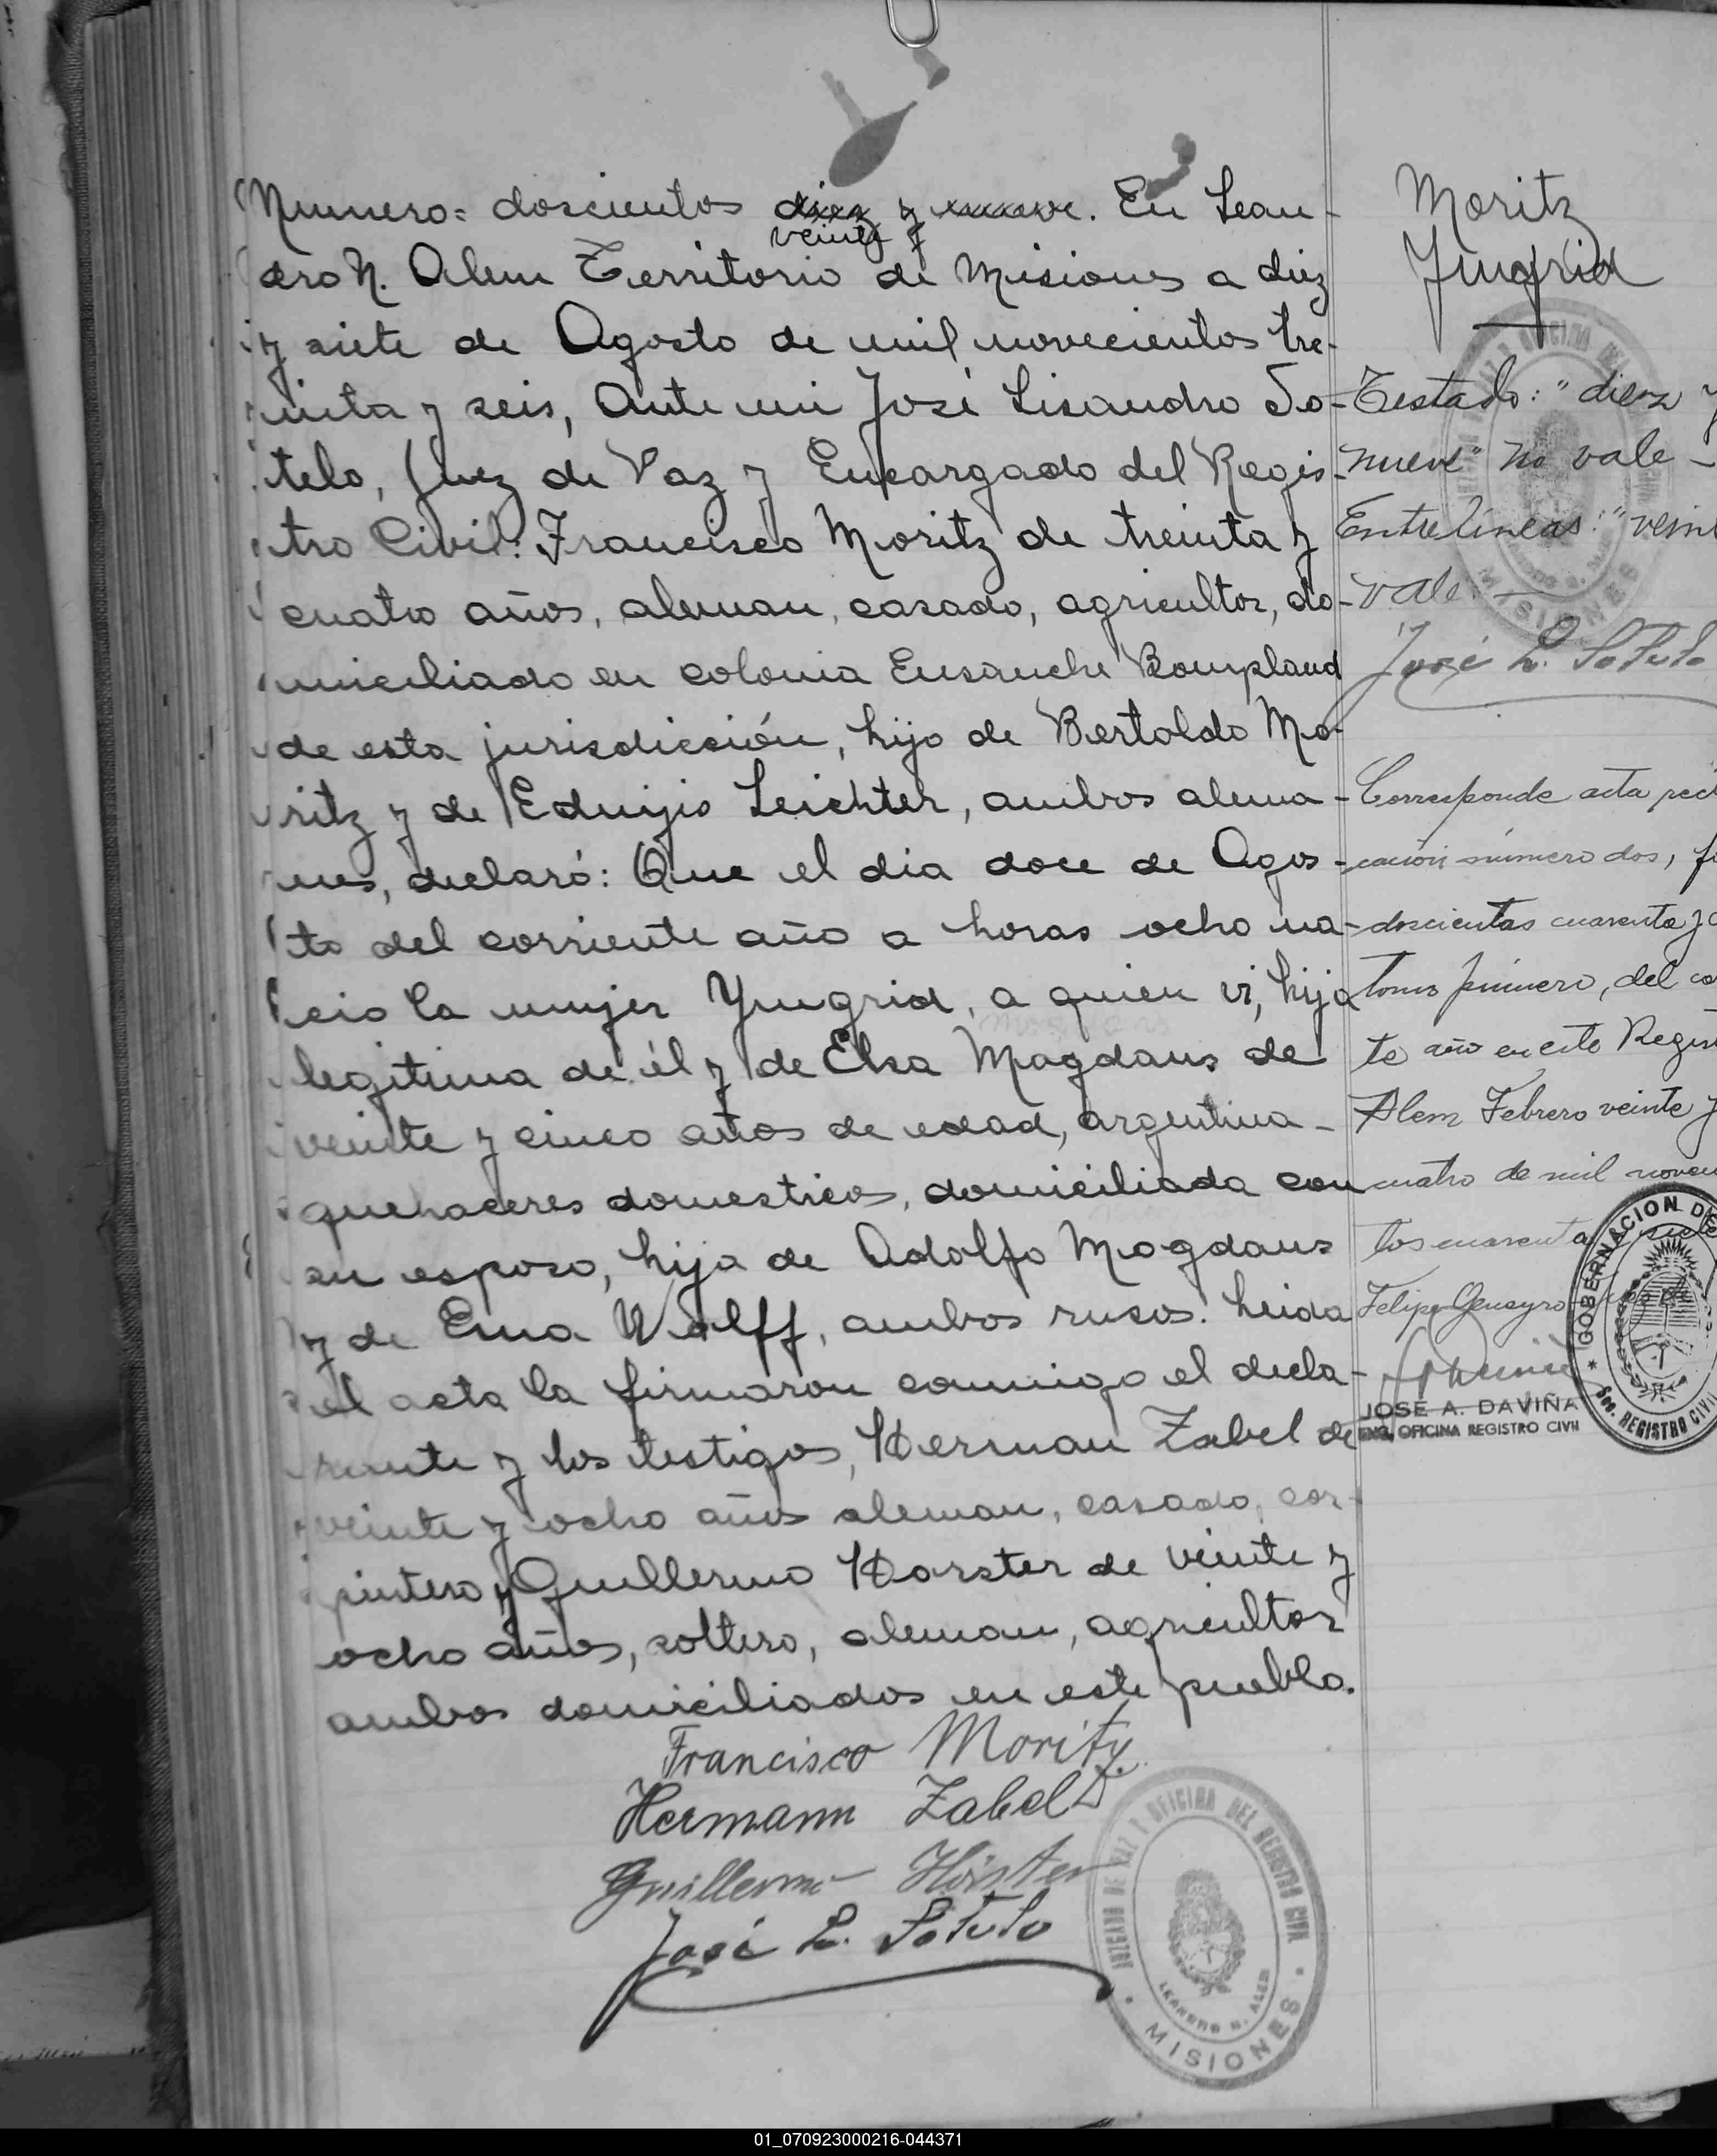 Numero: doscientos diez y nueve. En Lean-
veinte y
dro N. Alem Territorio de Misiones a diez
y siete de Agosto de mil novecientos tre-
inta y seis, Ante mi José Lisandro So-
telo, Juez de Paz y Encargado del Regis-
tro Civil: Francisco Moritz de treinta y
cuatro años, aleman, casado, agricultor, do-
miciliado en colonia Ensanche Bompland
de esta jurisdicción, hijo de Bertoldo Mo-
ritz y de Eduijis Leichter, ambos alema-
nes, declaró: Que el dia doce de Agos-
to del corriente año a horas ocho na-
cio la mujer Yngrid, a quien vi, hija
legitima de él y de Elsa Magdans de
veinte y cinco años de edad, argentina-
quehaceres domesticos, domiciliada con
su esposo, hija de Adolfo Magdans
y de Ema Wolff, ambos rusos. Leida
el acta la firmaron conmigo el decla-
rante y los testigos, Herman Zabel de
veinte y ocho años aleman, casado, car-
pintero y Guillermo Horster de veinte y
ocho años, soltero, aleman, agricultor
ambos domiciliados en este pueblo.
Francisco Moritz
Hermann Zabel
Guillermo Hörster
José L. Sotelo
JUZGADO DE PAZ Y OFICINA DEL REGISTRO CIVIL
LEANDRO N. ALEM
MISIONES
Moritz
Yngrid
Testado: "diez y
nueve" no vale -
Entrelíneas: "veint
vale. -
José L. Sotelo
MISIONES
Corresponde acta recti
cación número dos, fo
doscientas cuarenta y
tomo primero, del co
te año en este Regist
Alem Febrero veinte y
cuatro de mil noveci
tos cuarenta
Felipe
JOSE A. DAVIÑA
ENC. OFICINA REGISTRO CIVIL
GOBERNACION DE
Sec. REGISTRO CIVIL
01_070923000216-044371